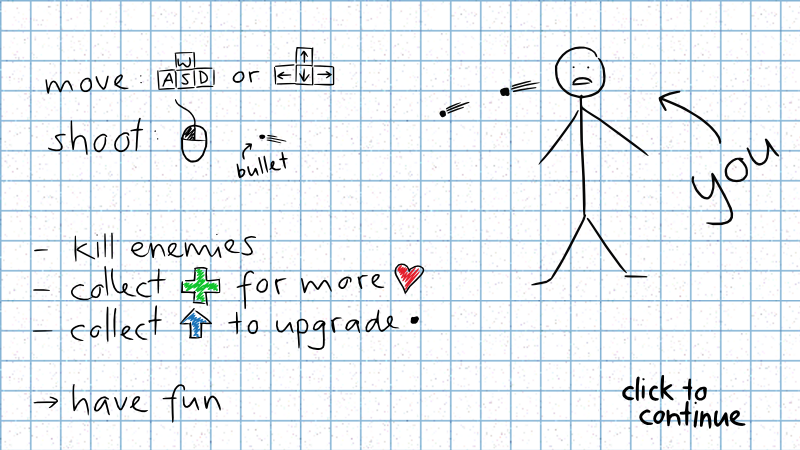 move: W A S D or ↑ ← ↓ →
shoot:
bullet
- kill enemies
- collect for more
- collect to upgrade
→ have fun
you
click to
continue